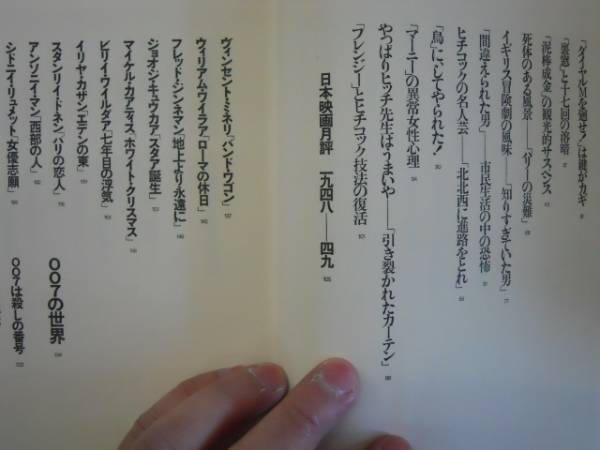 「ダイヤルMを廻せ！」は鍵がカギ
「裏窓」と十七回の溶暗
「泥棒成金」の観光的サスペンス
死体のある風景――「ハリーの災難」
イギリス冒険劇の風味――「知りすぎていた男」
「間違えられた男」――市民生活の中の恐怖
ヒチコックの名人芸――「北北西に進路をとれ」
「鳥」にしてやられた！
「マーニー」の異常女性心理
やっぱりヒッチ先生はうまいや――「引き裂かれたカーテン」
「フレンジー」とヒチコック技法の復活
日本映画月評 一九四八――四九
ヴィンセント・ミネリ「バンド・ワゴン」
ウィリアム・ワイラア「ローマの休日」
フレッド・ジンネマン「地上より永遠に」
ジョオジ・キュウカア「スタア誕生」
マイケル・カアティス「ホワイト・クリスマス」
ビリイ・ワイルダア「七年目の浮気」
イリヤ・カザン「エデンの東」
スタンリイ・ドネン「パリの恋人」
アンソニイ・マン「西部の人」
シドニイ・リュメット「女優志願」
007の世界
007は殺しの番号